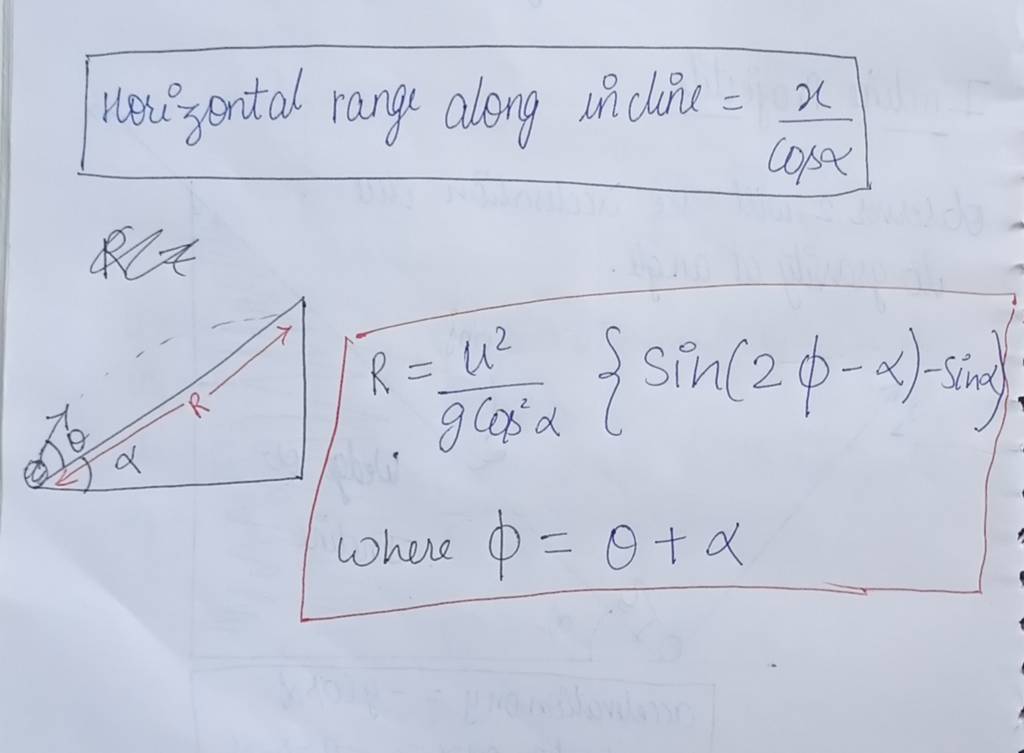 Horizontal range along incline = x / cosα
R
θ
α
R = u² / g cos²α { sin(2ϕ - α) - sinα }
where ϕ = θ + α